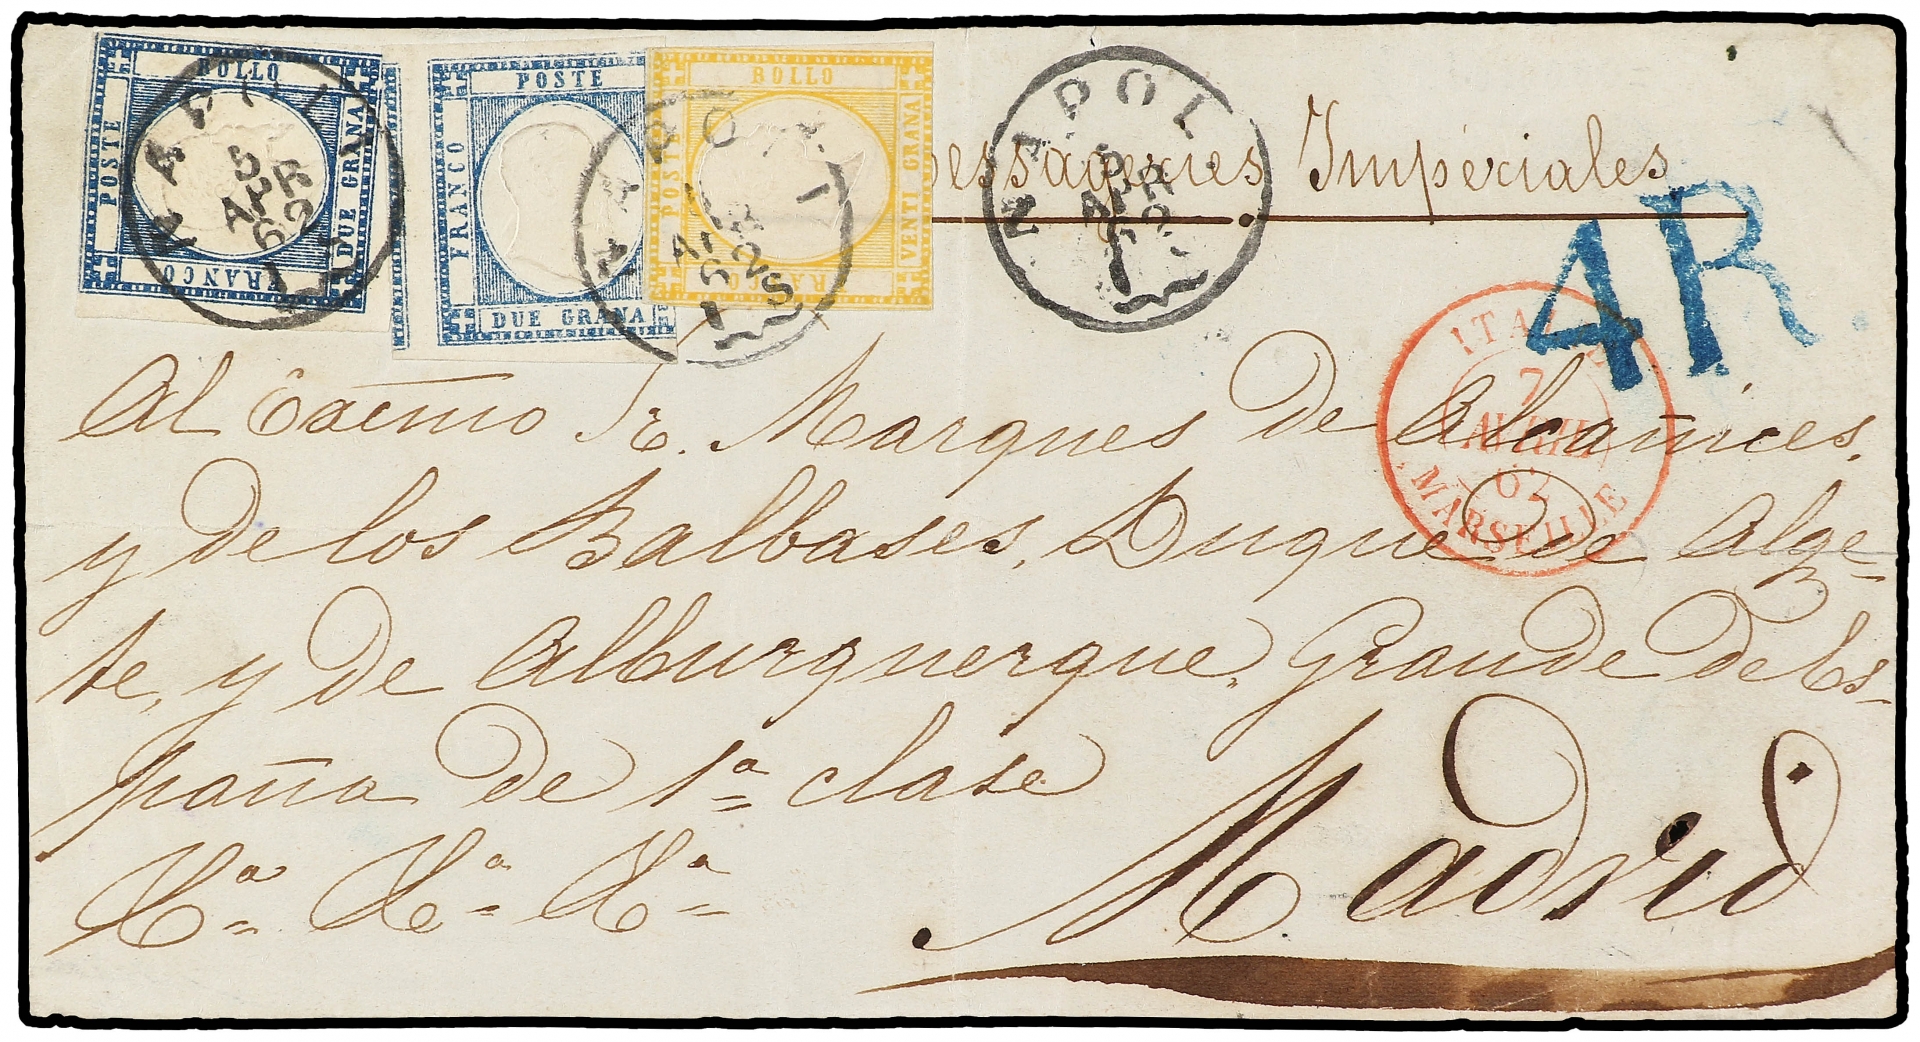 BOLLO
POSTE
DUE GRANA
FRANCO
POSTE
FRANCO
DUE GRANA
BOLLO
POSTE
VENTI GRANA
FRANCO
NAPOLI
5
APR
62
1S
NAPOLI
5
APR
62
1S
NAPOLI
5
APR
62
1S
essageries Impériales
4R
ITALIE
7
AVRIL
62
MARSEILLE
Al Excmo Sr. Marques de Alcañices,
y de los Balbases, Duque de Alge-
te, y de Alburquerque, Grande de Es-
paña de 1ª clase
Madrid